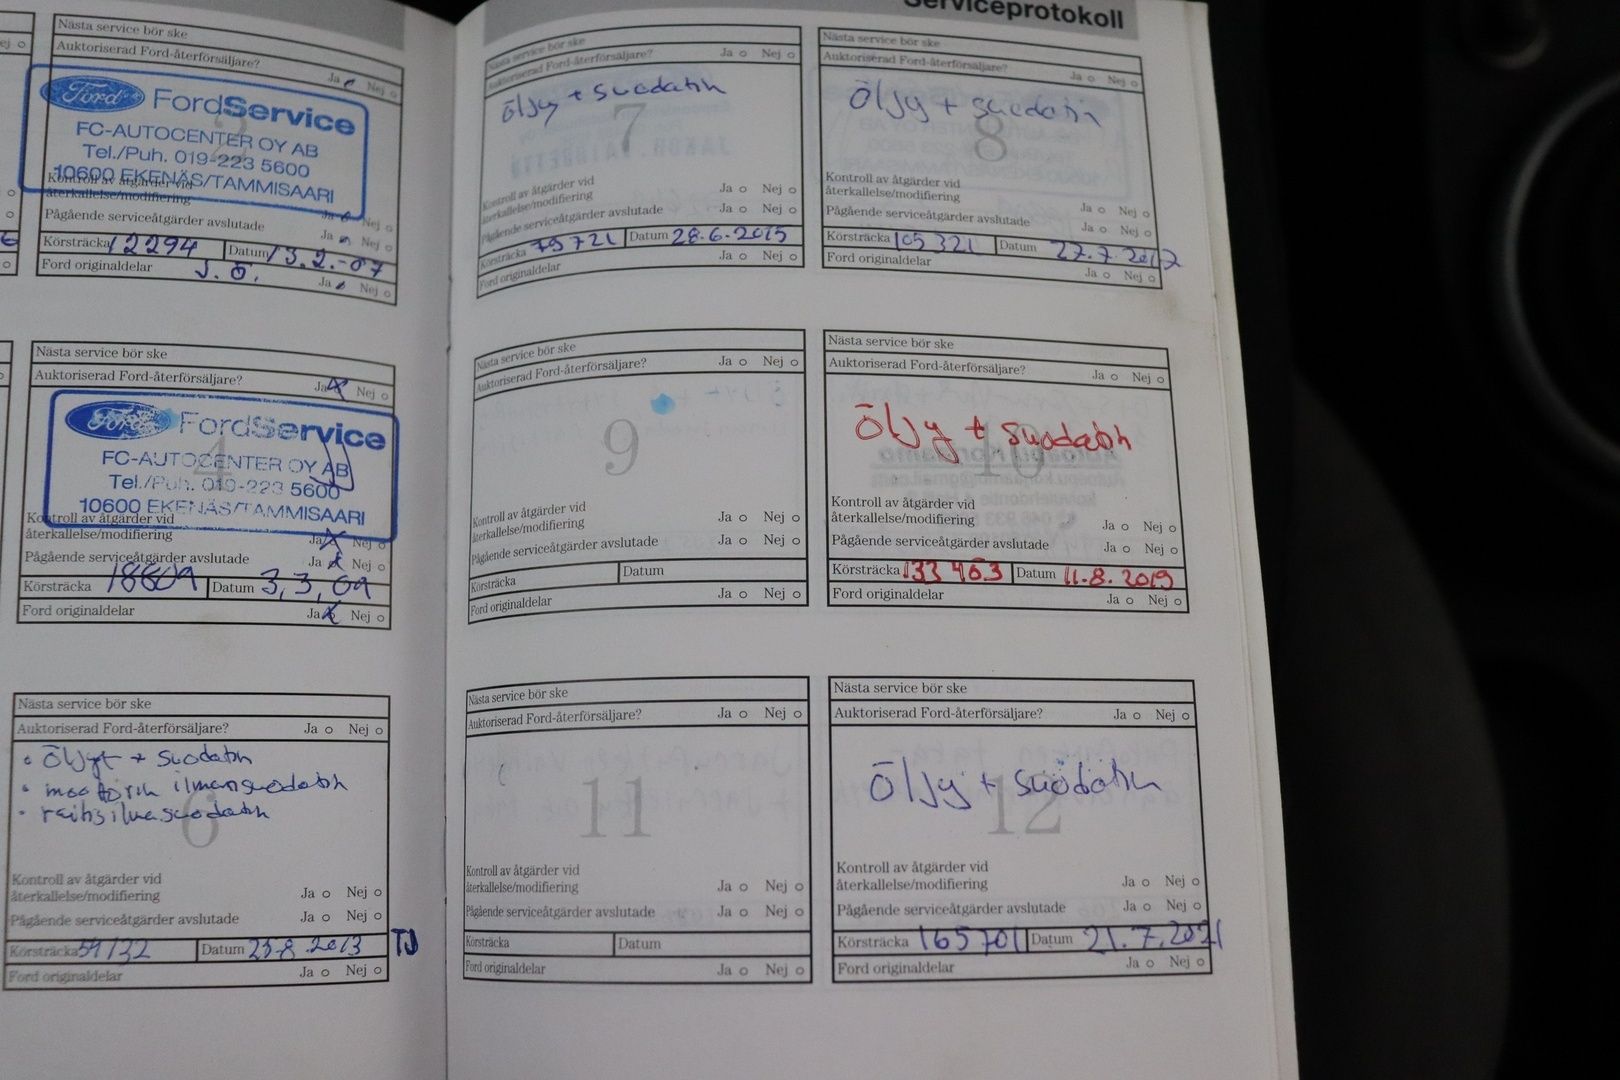 Serviceprotokoll
Nästa service bör ske
Auktoriserad Ford-återförsäljare?
Ja Nej
2
Ford FordService
FC-AUTOCENTER OY AB
Tel./Puh. 019-223 5600
10600 EKENÄS/TAMMISAARI
Kontroll av åtgärder vid
återkallelse/modifiering
Ja Nej
Pågående serviceåtgärder avslutade
Ja Nej
Körsträcka 12294 Datum 13.2.-07
Ford originaldelar J.Ö.
Ja Nej
Nästa service bör ske
Auktoriserad Ford-återförsäljare?
Ja Nej
4
Ford FordService
FC-AUTOCENTER OY AB
Tel./Puh. 019-223 5600
10600 EKENÄS/TAMMISAARI
Kontroll av åtgärder vid
återkallelse/modifiering Ja Nej
Pågående serviceåtgärder avslutade Ja Nej
Körsträcka 18809 Datum 3,3,09
Ford originaldelar Ja Nej
Nästa service bör ske
Auktoriserad Ford-återförsäljare? Ja Nej
• Öljyt + suodatin
• moottorin ilmansuodatin
• raitisilmasuodatin
6
Kontroll av åtgärder vid
återkallelse/modifiering Ja Nej
Pågående serviceåtgärder avslutade Ja Nej
Körsträcka 59132 Datum 23.8.2013 TJ
Ford originaldelar Ja Nej
Nästa service bör ske
Auktoriserad Ford-återförsäljare? Ja Nej
Öljy + suodatin
7
Kontroll av åtgärder vid
återkallelse/modifiering Ja Nej
Pågående serviceåtgärder avslutade Ja Nej
Körsträcka 79721 Datum 28.6.2015
Ford originaldelar Ja Nej
Nästa service bör ske
Auktoriserad Ford-återförsäljare? Ja Nej
Öljy + suodatin
8
Kontroll av åtgärder vid
återkallelse/modifiering Ja Nej
Pågående serviceåtgärder avslutade Ja Nej
Körsträcka 105321 Datum 27.7.2017
Ford originaldelar Ja Nej
Nästa service bör ske
Auktoriserad Ford-återförsäljare? Ja Nej
9
Kontroll av åtgärder vid
återkallelse/modifiering Ja Nej
Pågående serviceåtgärder avslutade Ja Nej
Körsträcka Datum
Ford originaldelar Ja Nej
Nästa service bör ske
Auktoriserad Ford-återförsäljare? Ja Nej
Öljy + suodatin
10
Kontroll av åtgärder vid
återkallelse/modifiering Ja Nej
Pågående serviceåtgärder avslutade Ja Nej
Körsträcka 133463 Datum 11.8.2019
Ford originaldelar Ja Nej
Nästa service bör ske
Auktoriserad Ford-återförsäljare? Ja Nej
11
Kontroll av åtgärder vid
återkallelse/modifiering Ja Nej
Pågående serviceåtgärder avslutade Ja Nej
Körsträcka Datum
Ford originaldelar Ja Nej
Nästa service bör ske
Auktoriserad Ford-återförsäljare? Ja Nej
Öljy + suodatin
12
Kontroll av åtgärder vid
återkallelse/modifiering Ja Nej
Pågående serviceåtgärder avslutade Ja Nej
Körsträcka 165701 Datum 21.7.2021
Ford originaldelar Ja Nej